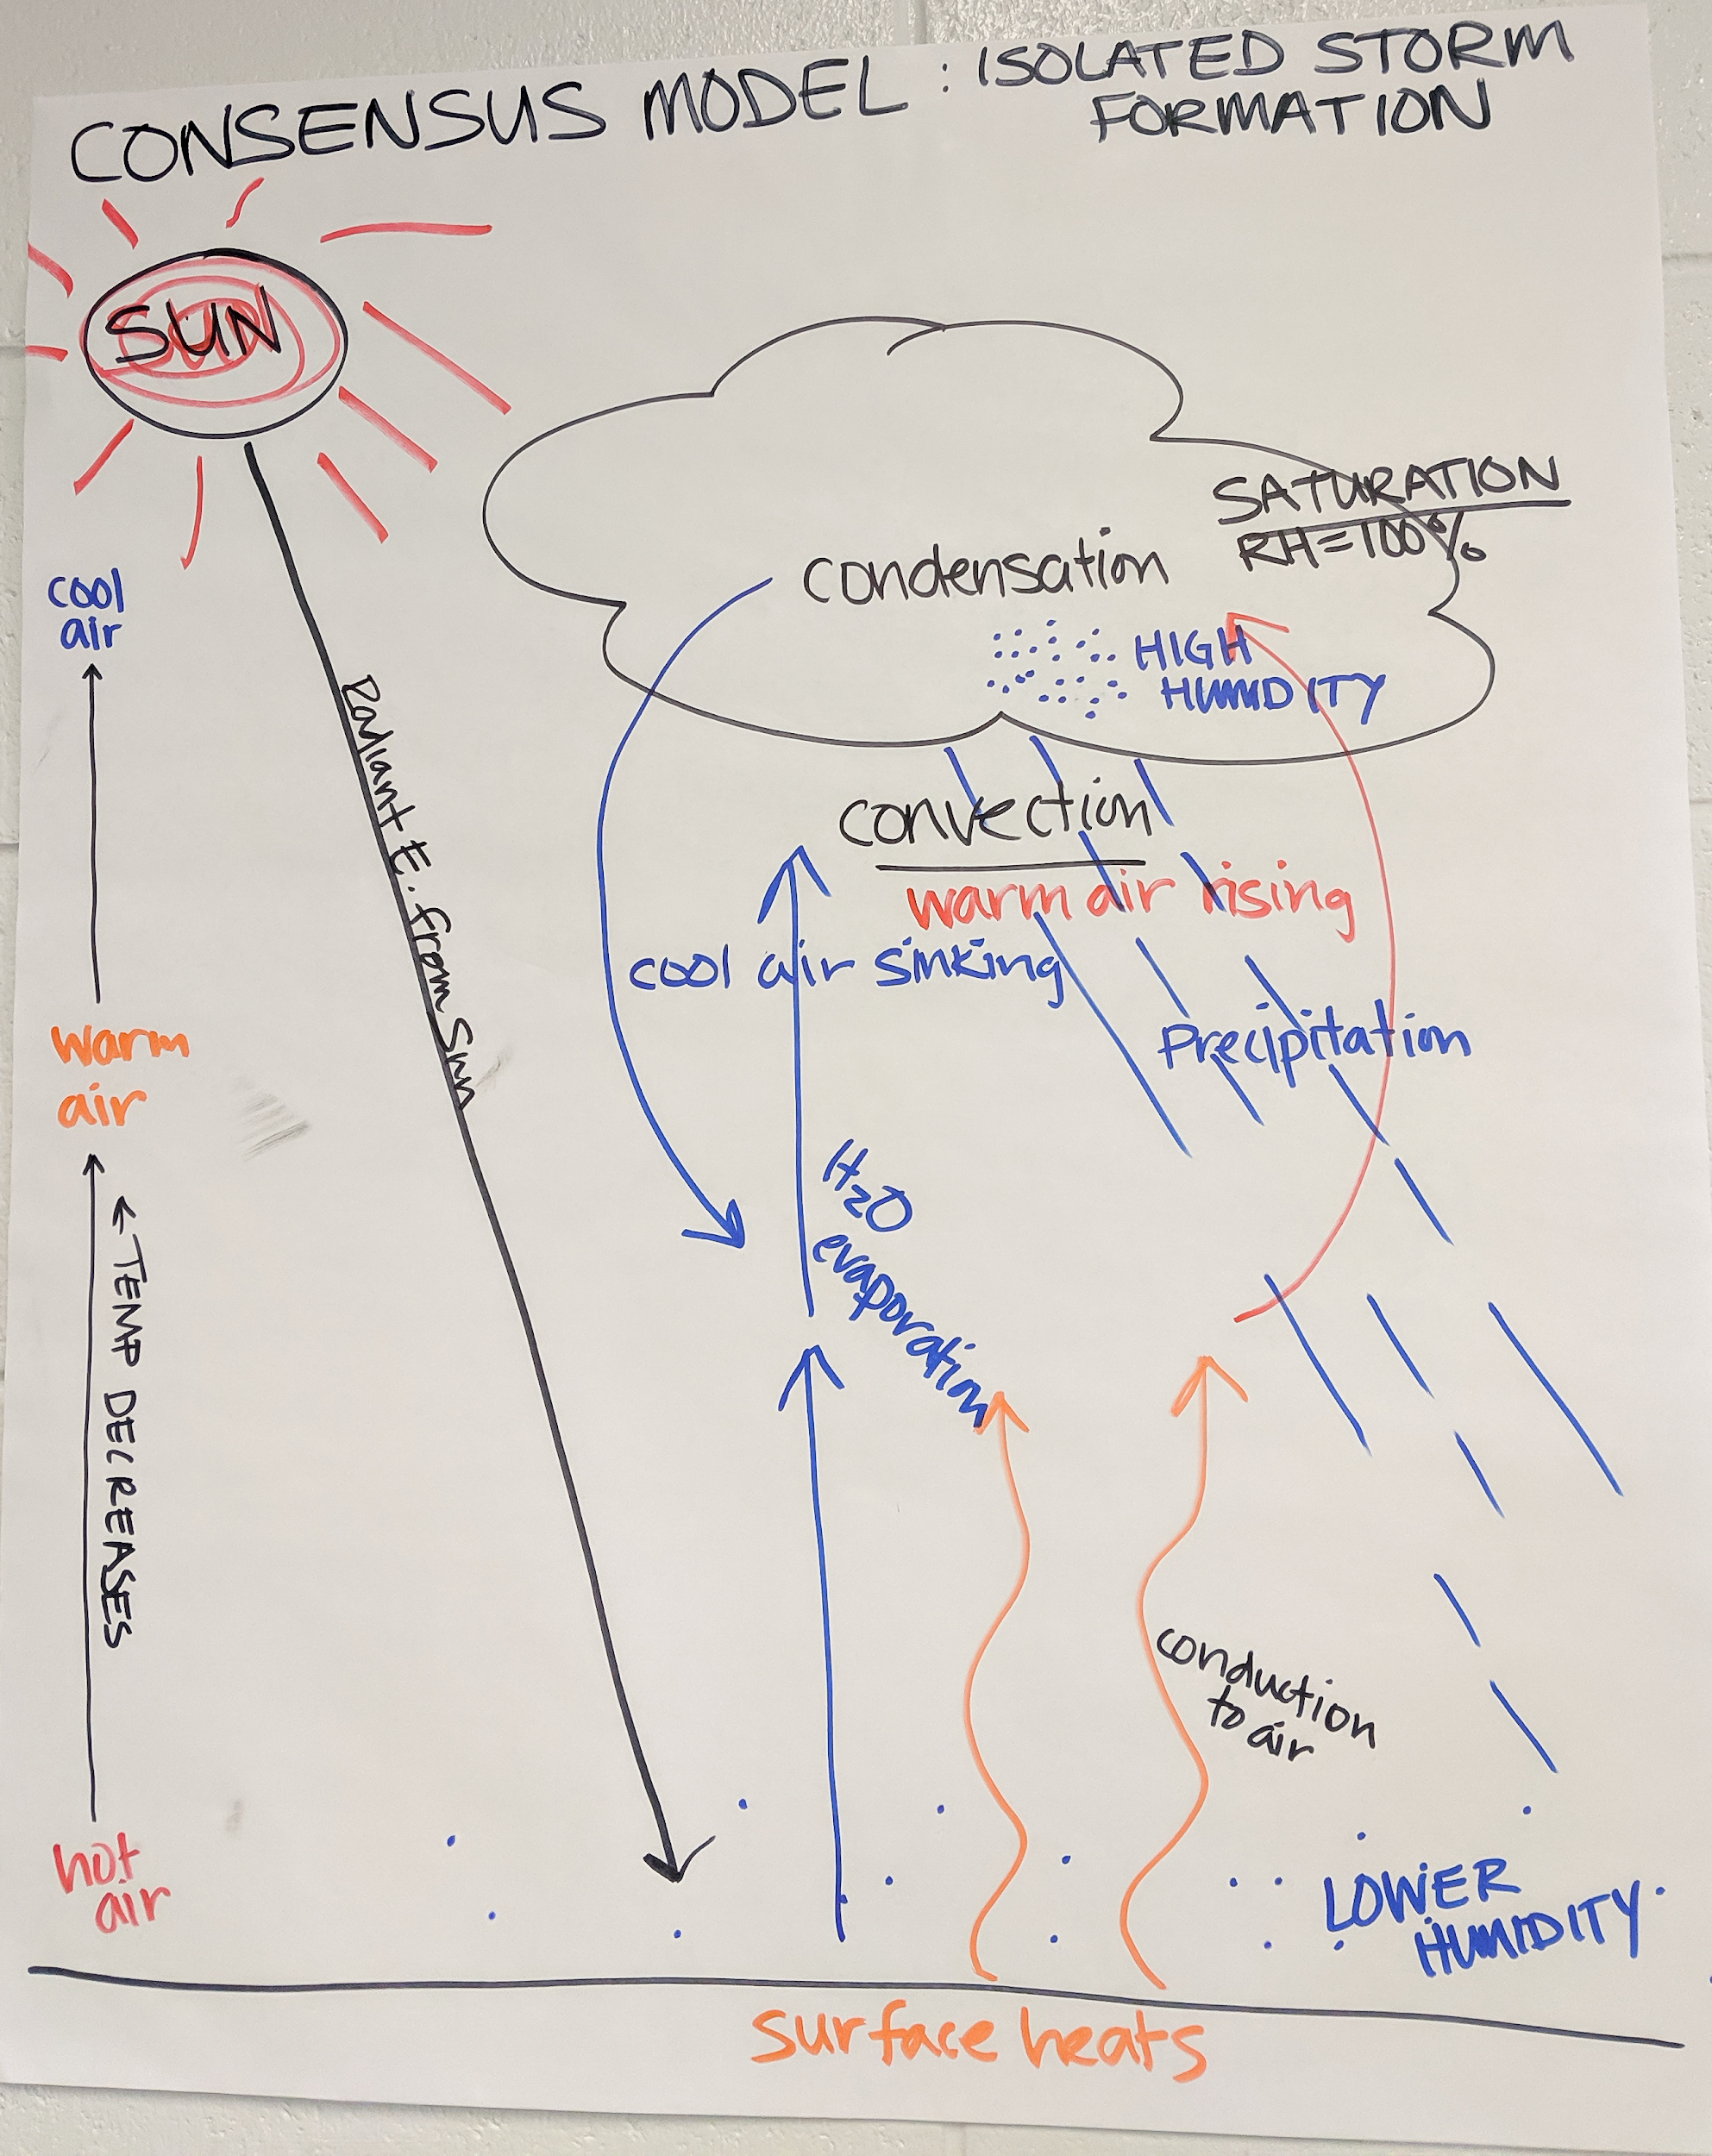 CONSENSUS MODEL : ISOLATED STORM
FORMATION
SUN
SATURATION
RH=100%
condensation
HIGH
HUMIDITY
cool
air
Radiant E. from Sun
convection
warm air rising
cool air sinking
Precipitation
warm
air
← TEMP DECREASES
H₂O
evaporation
conduction
to air
hot
air
LOWER
HUMIDITY
surface heats